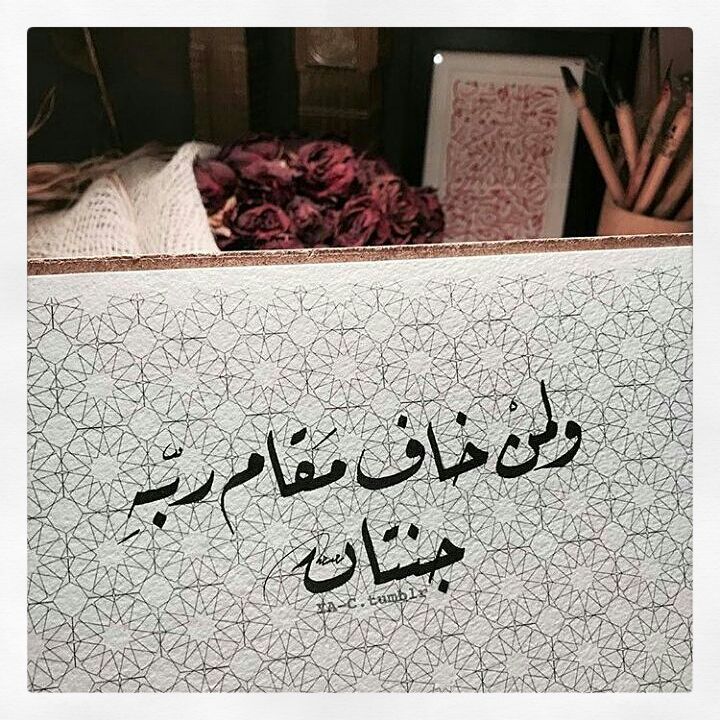 ولمنْ خاف مَقام ربّهِ
جنتان
YA-C.tumblr